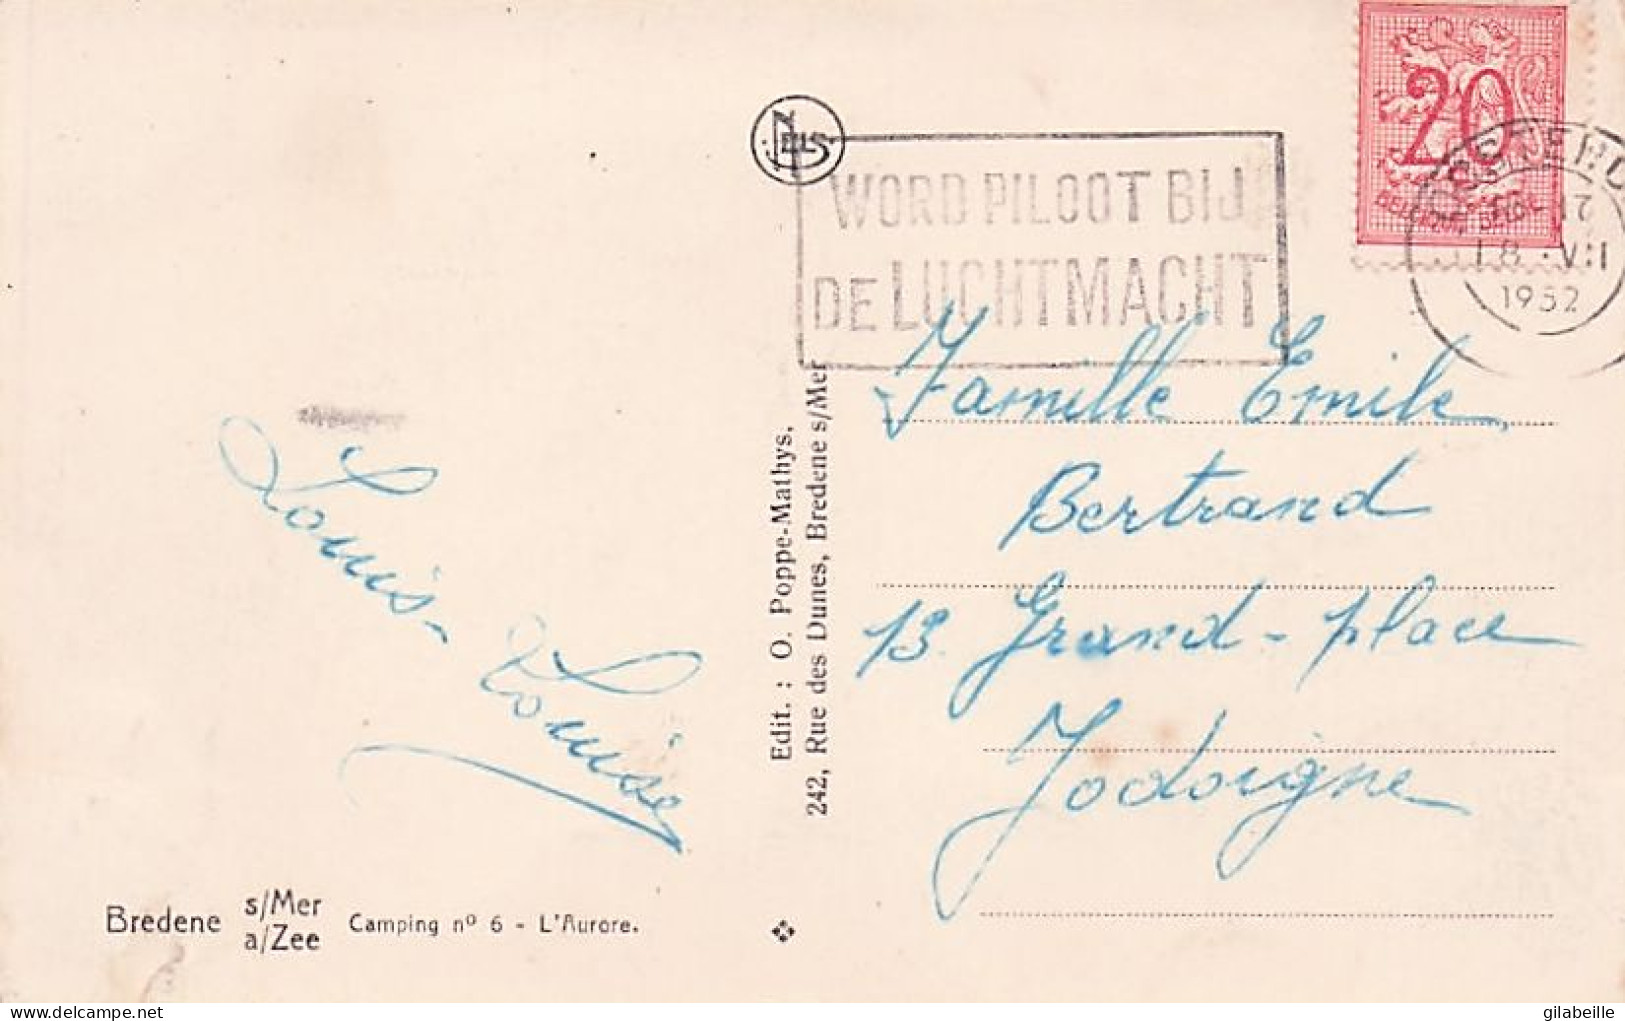 NELS
WORD PILOOT BIJ
DE LUCHTMACHT
20
BELGIQUE BELGIE
OOSTENDE
17
18 · VII
1952
Famille Emile
Bertrand
13 Grand-place
Jodoigne
Louis-
Louise
Edit. : O. Poppe-Mathys,
242, Rue des Dunes, Bredene s/Mer
Bredene s/Mer
a/Zee
Camping nº 6 - L'Aurore.
gilabeille